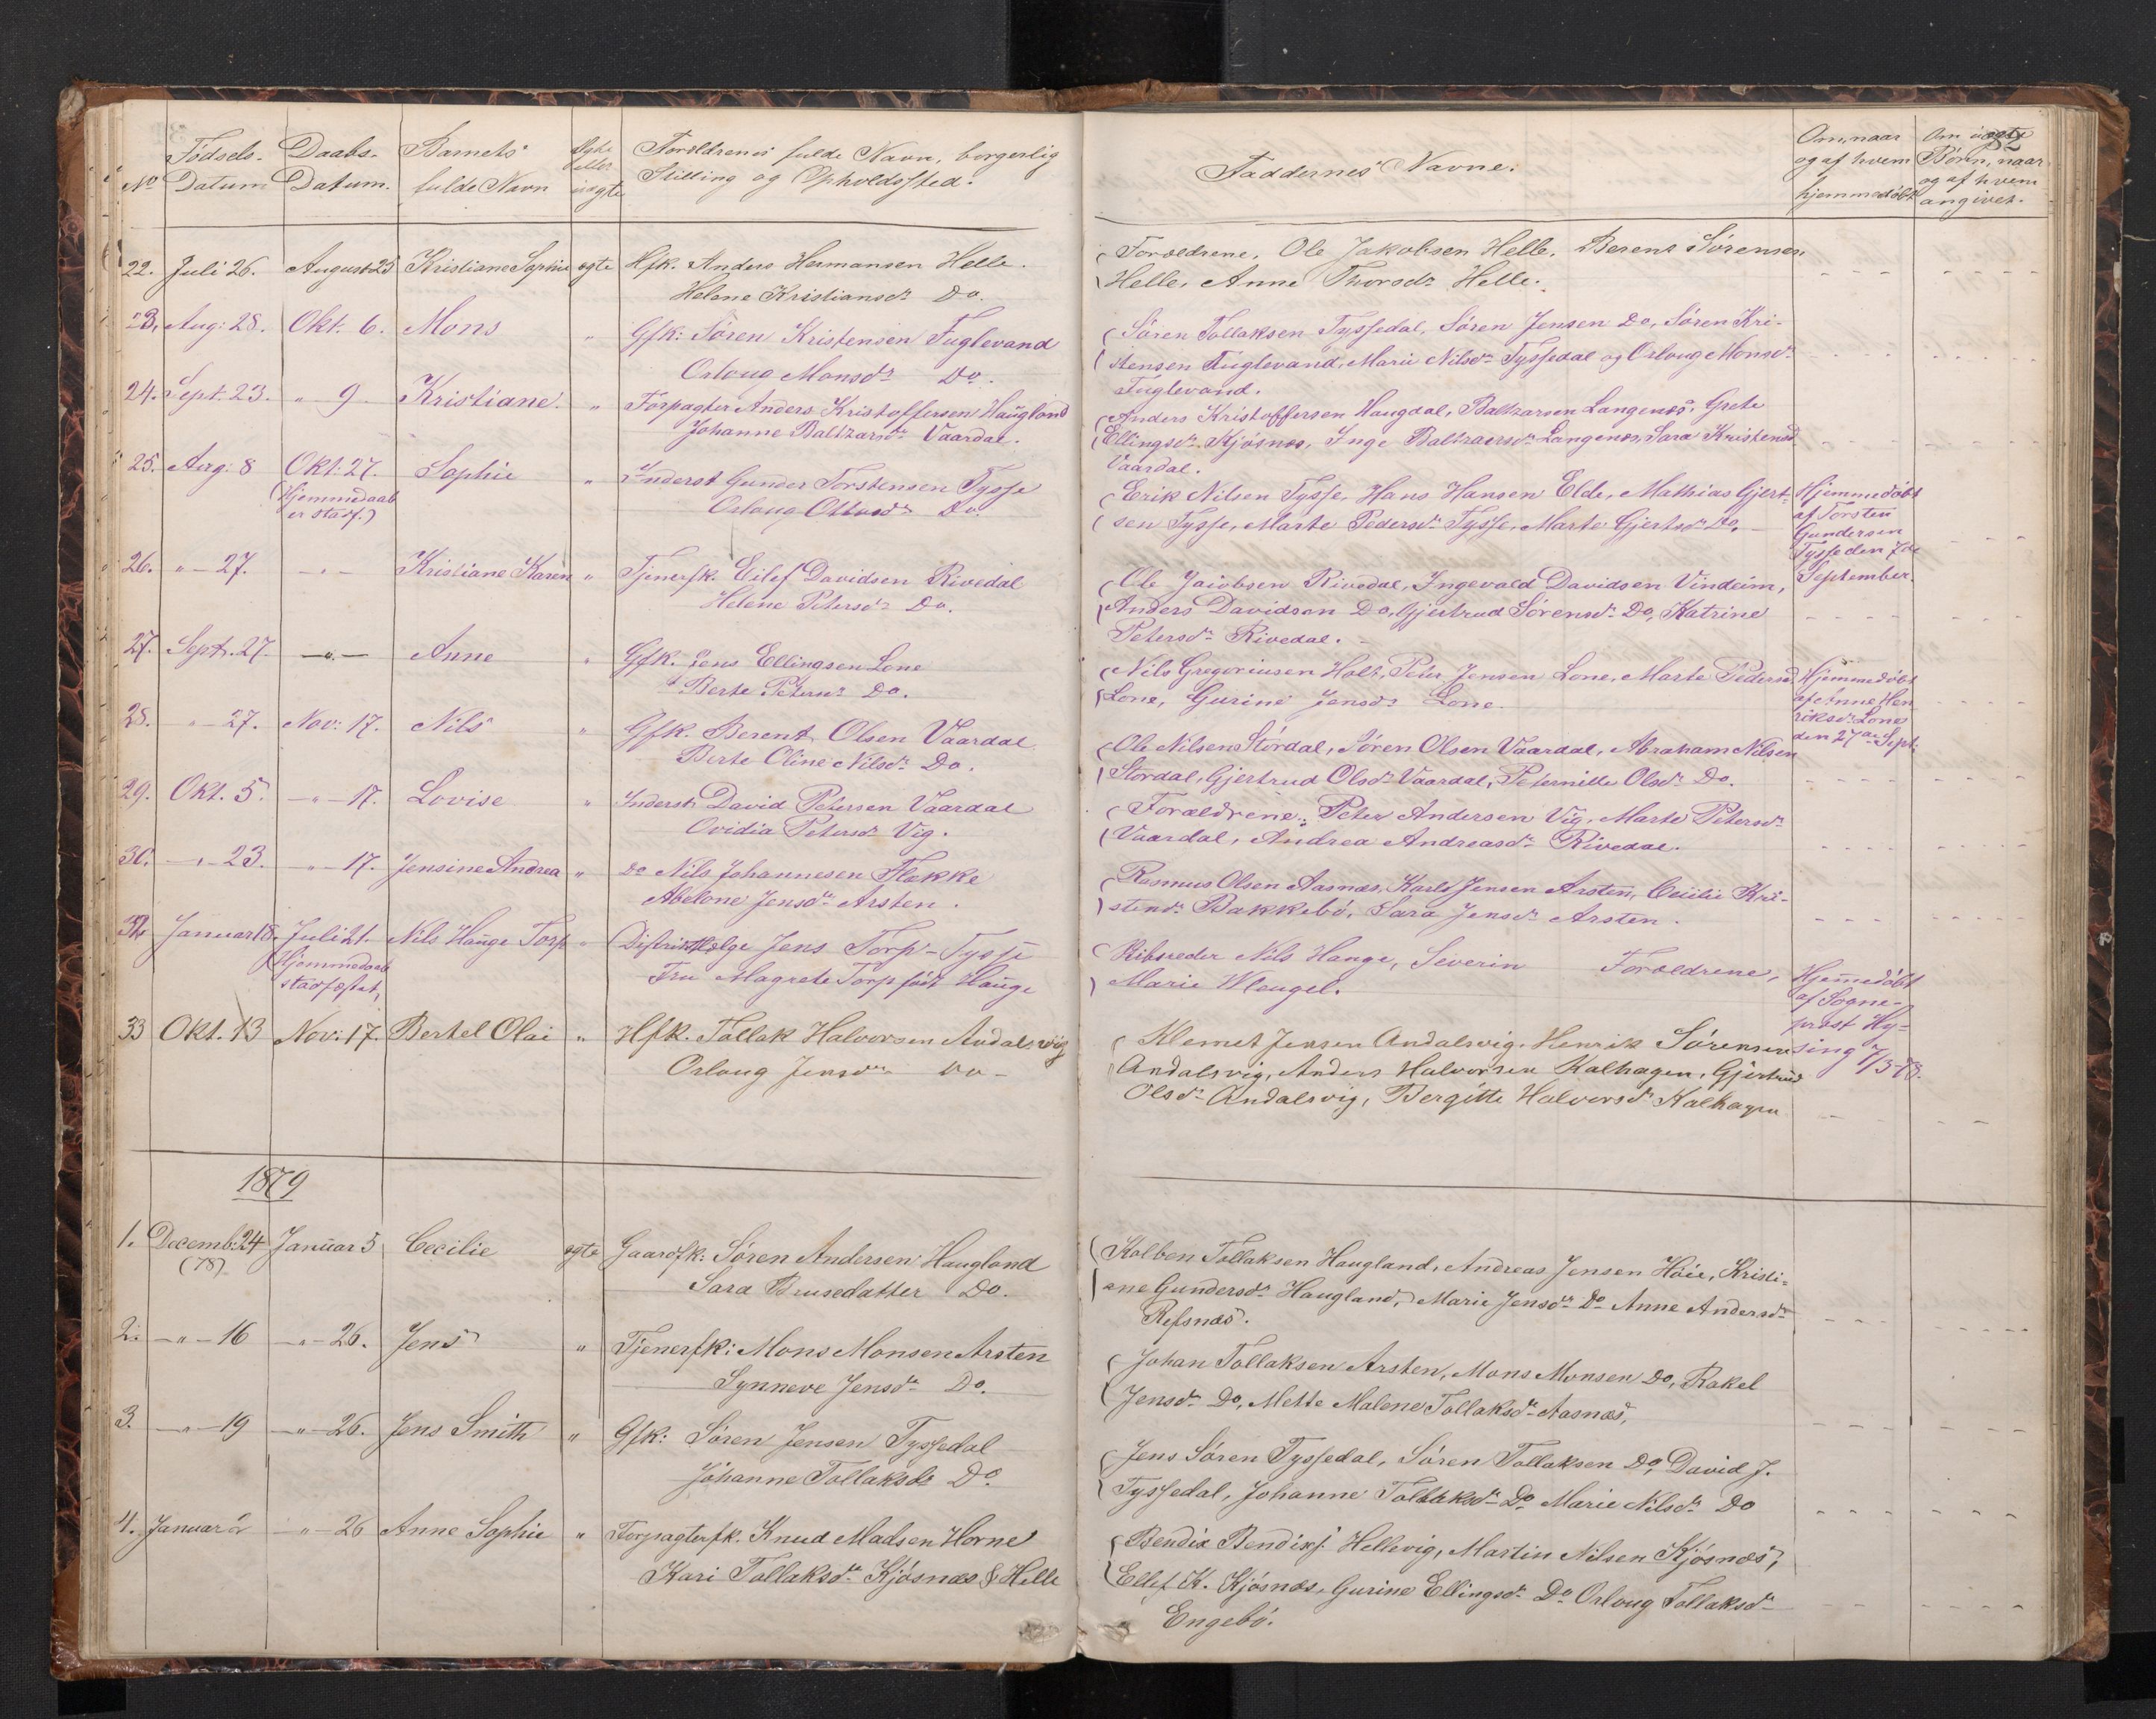 No Fødsels- Datum
Daabs- Datum.
Barnets fulde Navn
Ægte eller uægte
Forældrenes fulde Navn, borgerlig
Stilling og Opholdssted.
Faddernes Navne.
Om, naar og af hvem hjemmedøbt
Om uægte Børn, naar og af hvem angivet.
22. Juli 26. August 25 Kristiane Sophie ægte Gfk. Anders Hermansen Helle.
Helene Kristiansdr Do.
Forældrene, Ole Jakobsen Helle, Berent Sørensen
Helle, Anne Thorsdr Helle.
23. Aug: 28. Okt. 6. Mons " Gfk: Søren Kristensen Fuglevand
Orloug Monsdr Do.
Søren Tollaksen Tyssedal, Søren Jensen Do, Søren Kri-
stensen Fuglevand, Marie Nilsdr Tyssedal og Orloug Monsdr
Fuglevand.
24. Sept. 23. " 9 Kristiane. " Forpagter Anders Kristoffersen Haugland
Johanne Baltzarsdr Vaardal.
Anders Kristoffersen Haugdal, Baltzarsen Langenæs, Grete
Ellingsdr Kjøsnæs, Inge Baltzarsdr Langenæs, Sara Kristensd
Vaardal.
25. Aug: 8 Okt: 27. Sophie " Inderst Gunder Torstensen Tysse
(Hjemmedaab er stadf.)
Orloug Ottosdr Do.
Erik Nilsen Tysse, Hans Hansen Elde, Mathias Gjert-
sen Tysse, Marte Pedersdr Tysse, Marte Gjertsdr Do.
Hjemmedøbt
af Torsten
Gundersen
Tysse den 7de
September.
26. " 27. - " - Kristiane Karen " Tjenerfk. Eilef Davidsen Rivedal
Helene Petersdr Do.
Ole Jacobsen Rivedal, Ingevald Davidsen Vindeim,
Anders Davidsen Do, Gjertrud Sørensdr Do, Katrine
Petersdr Rivedal.
27. Sept. 27. - " - Anne " Gfk. Jens Ellingsen Lone
Berte Petersdr Do.
Nils Gregoriusen Holt, Peter Jensen Lone, Marte Pedersd
Lone, Gurine Jensdr Lone.
Hjemmedøbt
af Anne Hen-
riksdr Lone
den 27de Sept.
28. " 27. Nov: 17. Nils " Gfk. Berent Olsen Vaardal
Berte Oline Nilsdr Do.
Ole Nilsen Stórdal, Søren Olsen Vaardal, Abraham Nilsen
Stordal, Gjertrud Olsdr Vaardal, Peternille Olsdr Do.
29. Okt. 5. - " - 17. Lovise " Inderst David Petersen Vaardal
Ovidia Petersdr Vig.
Forældrene, Peter Andersen Vig, Marte Petersdr
Vaardal, Andrea Andreasdr Rivedal.
30. - " - 23. " - 17. Jensine Andrea " Do Nils Johannesen Flekke
Abelone Jensdr Arsten.
Rasmus Olsen Aasnæs, Karls Jensen Arsten, Cecilie Kri-
stensdr Bakkebø, Sara Jensdr Arsten.
Januar 18. Juli 21. Nils Hauge Torp " Distriktslæge Jens Torp - Tysse
(Hjemmedaab stadfæstet,
Fru Magrete Torp født Hauge
Skibsreder Nils Hauge, Severin Forældrene,
Marie Wleugel.
Hjemmedøbt
af Sogne-
prest Hy-
sing 7/3 78.
33 Okt. 13 Nov. 17. Bertel Olai " Hfk. Tollak Halvorsen Andalsvig
Orloug Jensdr Do -
Klemet Jensen Andalsvig, Henrik Sørensen
Andalsvig, Anders Halvorsen Kalhagen, Gjertrud
Olsdr Andalsvig, Bergitte Halvorsdr Kalhagen
1879
1. Decemb: 24 Januar 5 Cecilie ægte Gaardfk: Søren Andersen Haugland
(78)
Sara Bensedatter Do.
Kolben Tollaksen Haugland, Andreas Jensen Høie, Kristi-
ane Gundersdr Haugland, Marie Jensdr Do Anne Andersdr
Refsnæs.
2. - " - 16 - " - 26. Jens " Tjenerfk: Mons Monsen Arsten
Synneve Jensdr Do.
Johan Tollaksen Arsten, Mons Monsen Do, Rakel
Jensdr Do, Mette Malene Tollaksdr Aasnæs,
3. - " - 19 - " - 26. Jens Smith " Gfk: Søren Jensen Tyssedal
Johanne Tollaksdr Do.
Jens Søren Tyssedal, Søren Tollaksen Do, David J.
Tyssedal, Johanne Tollaksdr Do Marie Nilsdr Do
4. Januar 2 - " - 26 Anne Sophie " Forpagterfk. Knud Madsen Horne
Kari Tollaksdr Kjøsnæs § Helle
Bendix Bendixs. Hellevig, Martin Nilsen Kjøsnæs,
Ellef K. Kjøsnæs, Gurine Ellingsdr Do Orloug Tollaksdr
Engebø.